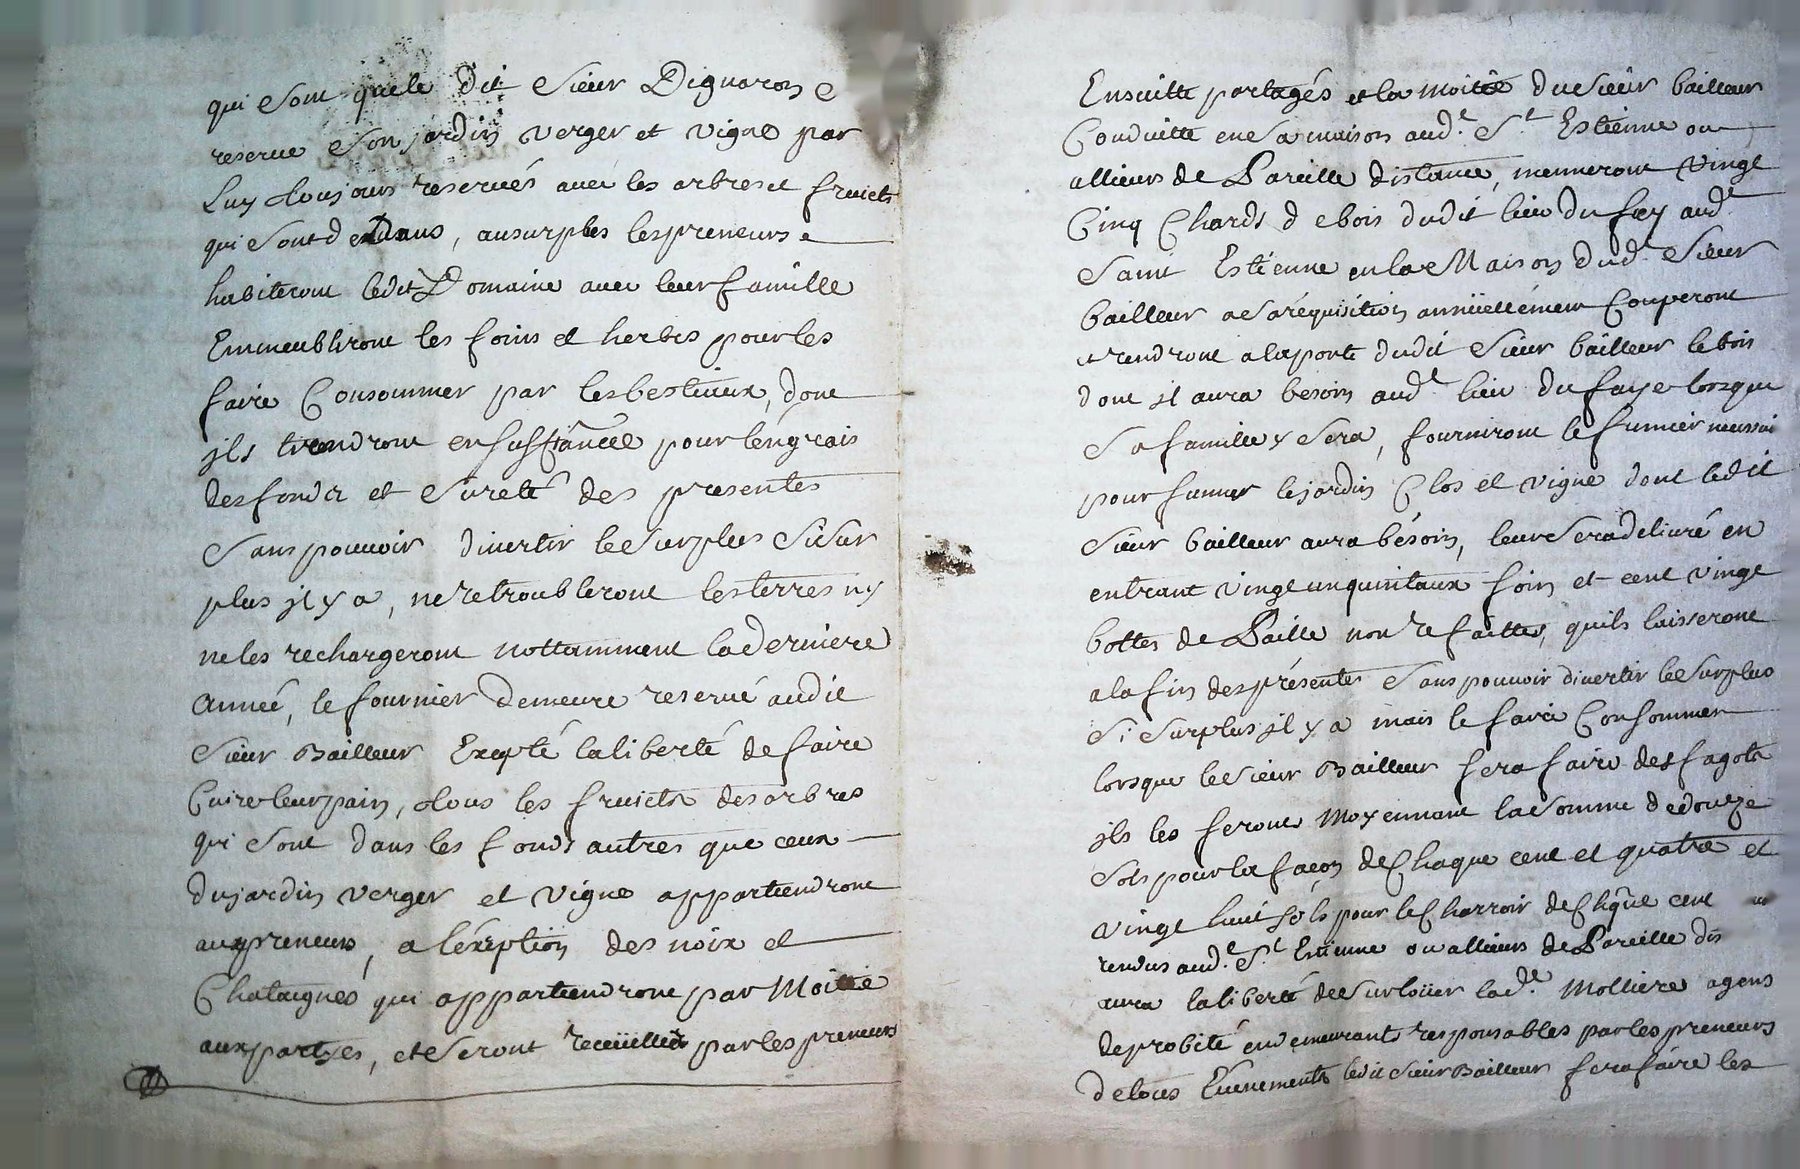 qui sont que le dit sieur Dignaron se
reserve son jardin verger et vigne par
luy toujours reservés avec les arbres et fruicts
qui sont dedans, au surplus les preneurs
habiteront ledit Domaine avec leur famille
Emmeubliront les foins et herbes pour les
faire Consommer par les bestiaux, dont
jls tiendront en suffisance pour lengrais
des fonds et sureté des presentes
sans pouvoir divertir le surplus si sur
plus jl y a, ne retroubleront les terres ny
ne les rechargeront nottamment la derniere
année, le fournier demeure reservé audit
sieur Bailleur Exepté la liberté de faire
Cuire leur pain, tous les fruicts des arbres
qui sont dans les fonds autres que ceux
du jardin verger et vigne appartiendront
aux preneurs, a léxeption des noix et
Chataignes qui appartiendront par Moitié
aux partyes, et seront receüillies par les preneurs
Ensuitte partagés et la moitié du sieur bailleur
Conduitte en sa maison aud.t S.t Estienne ou
allieurs de Pareille distance, menneront vingt
Cinq Chards de bois dudit lieu du fay aud.t
Saint Estienne en la Maison dud. Sieur
bailleur a sa réquisition annüellément Couperont
et rendront a la porte dudit sieur bailleur le bois
dont jl aura besoin aud.t lieu du faye lorsque
sa famille y sera, fourniront le fumier necessaire
pour fumer le jardin Clos et vigne dont ledit
sieur bailleur aura bésoin, leur sera delivré en
entrant vingt un quintaux foin et cent vingt
bottes de Paille non refaittes, quils laisseront
a la fin des présentes sans pouvoir divertir le surplus
si surplus jl y a mais le faire Consommer
lorsque le sieur Bailleur fera faire des fagots
jls les feront Moyennant la somme de douze
sols pour la façon de Chaque cent et quatre et
vingt huit sols pour le Charroir de Chque cent
rendus aud.t S.t Estienne ou allieurs de Pareille dis
aura la liberté de surloüer lad.te Molliere a gens
de probité en demeurants responsables par les preneurs
de tous Evenements ledit sieur Bailleur fera faire les